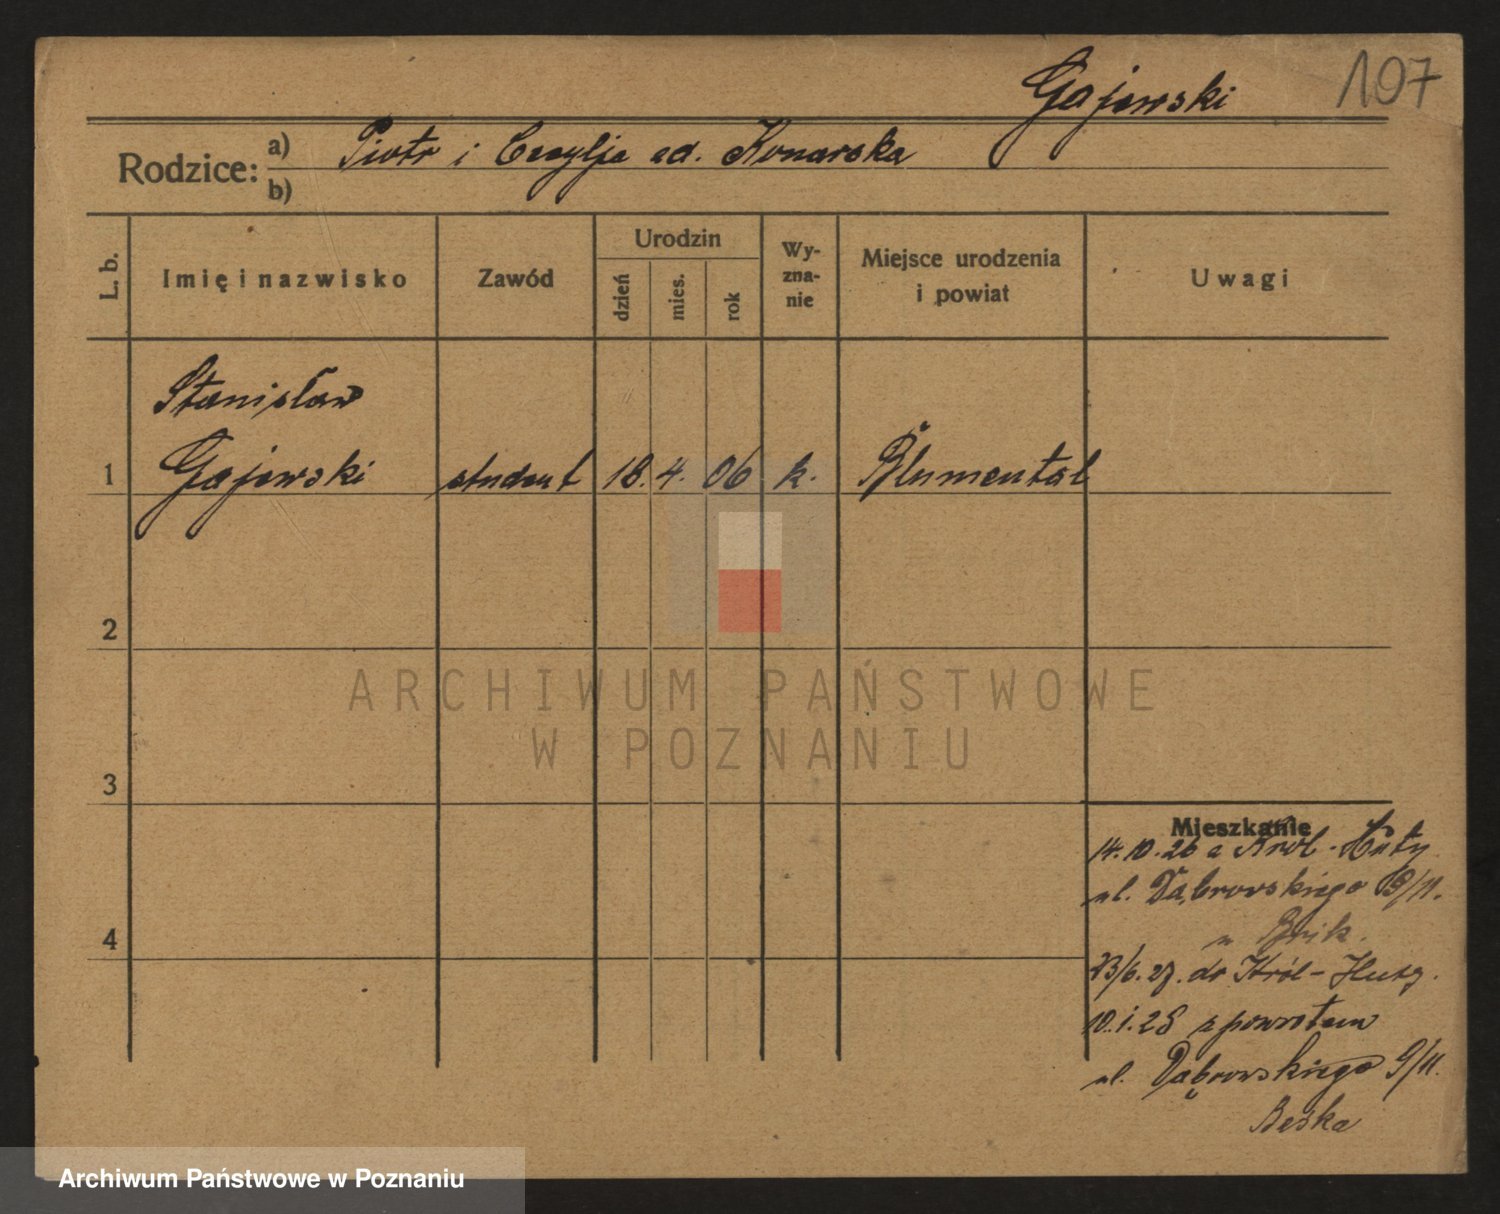 Gajewski
197
Rodzice:
a) Piotr i Cecylja zd. Konarska
b)
L. b.
Imię i nazwisko
Zawód
Urodzin
dzień
mies.
rok
Wy-
zna-
nie
Miejsce urodzenia
i powiat
Uwagi
Stanisław
1 Gajewski student 18. 4. 06 k. Blumental
2
ARCHIWUM PAŃSTWOWE
W POZNANIU
3
Mieszkanie
14.10.26 z Król. Huty
ul. Dąbrowskiego 9/11.
4
23/6. 27. do Król-Huty.
10.1.28 z powrotem
ul. Dąbrowskiego 9/11.
Archiwum Państwowe w Poznaniu